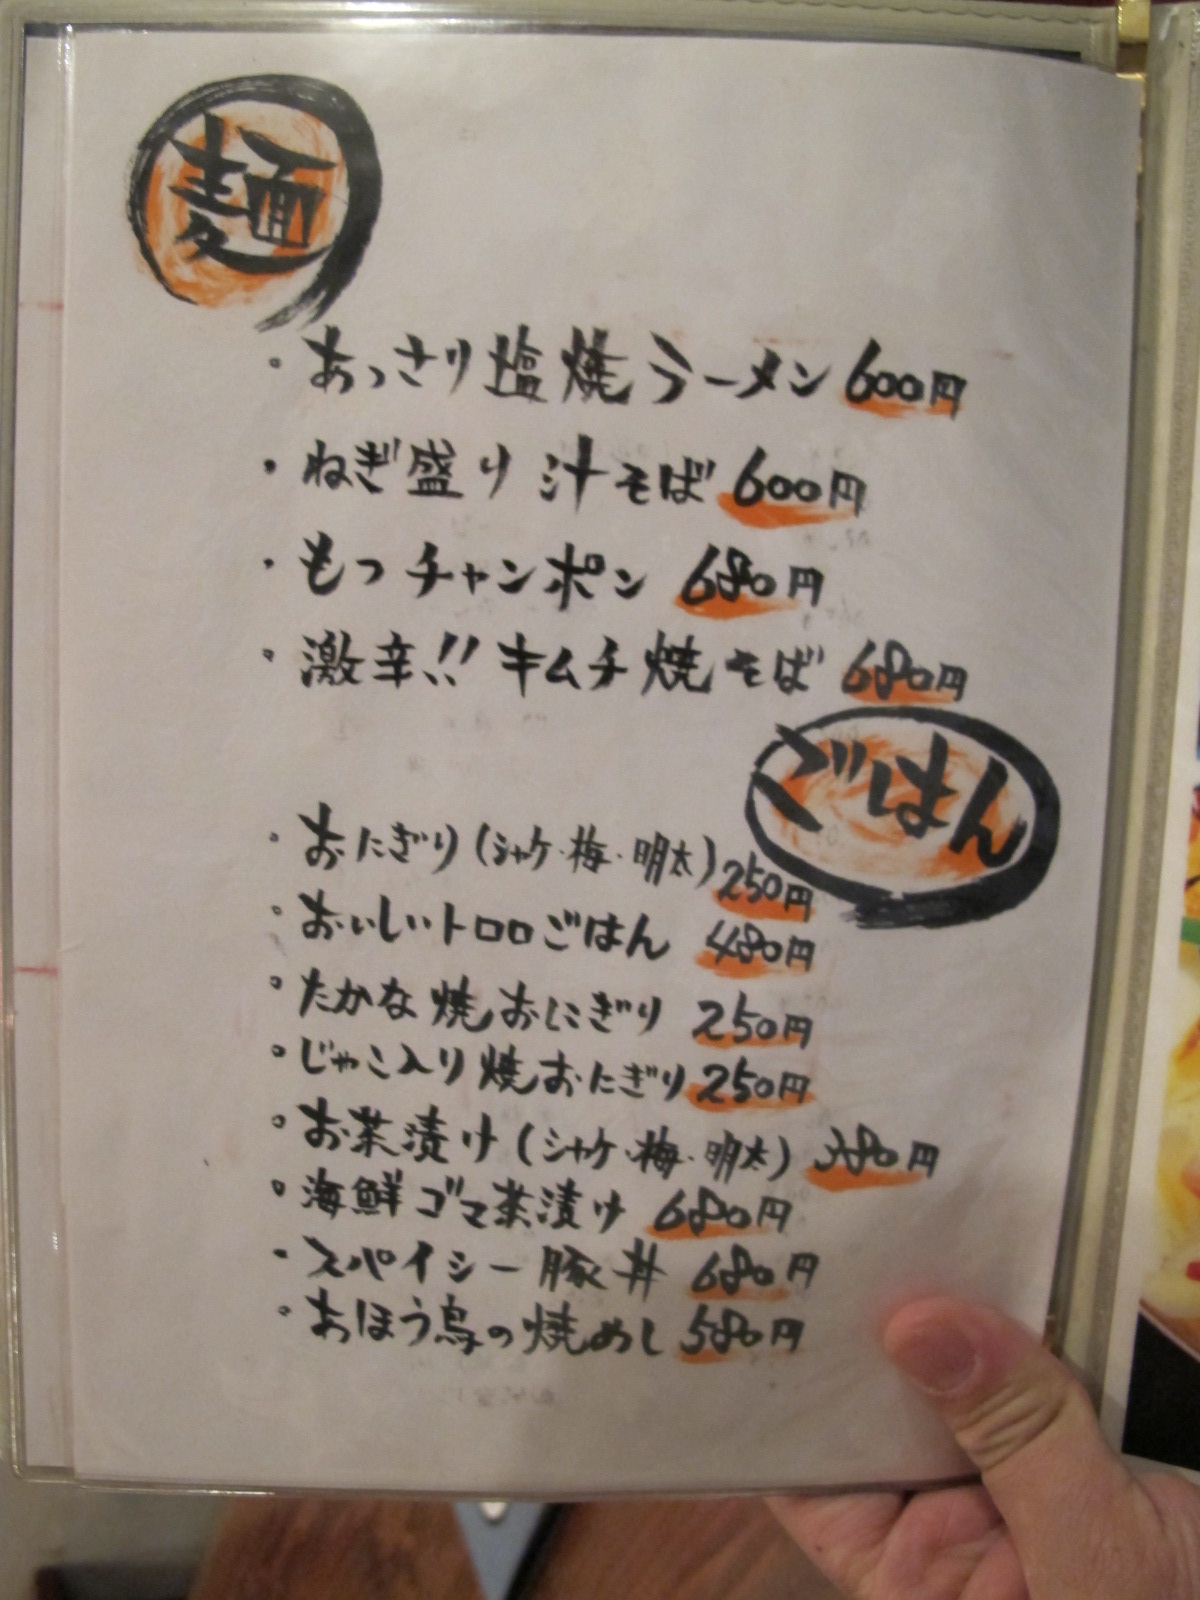 麺
・あっさり塩焼ラーメン 600円
・ねぎ盛り汁そば 600円
・もつチャンポン 680円
・激辛!!キムチ焼そば 680円
ごはん
・おにぎり(シャケ・梅・明太) 250円
・おいしいトロロごはん 480円
・たかな焼おにぎり 250円
・じゃこ入り焼おにぎり 250円
・お茶漬け(シャケ・梅・明太) 380円
・海鮮ゴマ茶漬け 680円
・スパイシー豚丼 680円
・あほう鳥の焼めし 580円